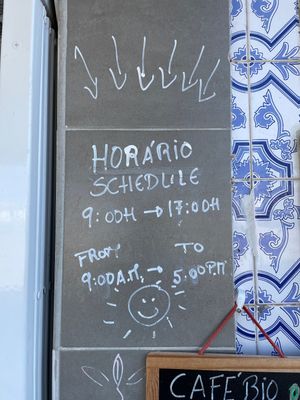 HORÁRIO
SCHEDULE
9:00H → 17:00H
FROM TO
9:00A.M, → 5:00P.M
CAFÉ BIO